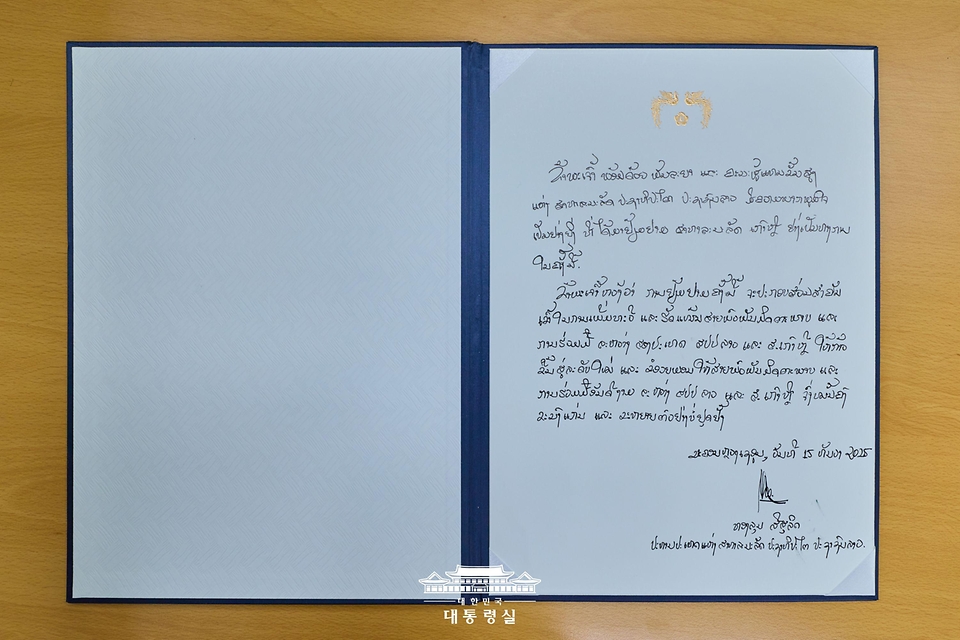 ຂ້າພະເຈົ້າ ພ້ອມດ້ວຍ ພັນລະຍາ ແລະ ຄະນະຜູ້ແທນຂັ້ນສູງ
ແຫ່ງ ສາທາລະນະລັດ ປະຊາທິປະໄຕ ປະຊາຊົນລາວ
ເປັນຢ່າງຍິ່ງ ທີ່ໄດ້ມາຢ້ຽມຢາມ ສາທາລະນະລັດ ເກົາຫຼີ ຢ່າງເປັນທາງການ
ໃນຄັ້ງນີ້.
ຂ້າພະເຈົ້າຫວັງວ່າ ການຢ້ຽມຢາມຄັ້ງນີ້ ຈະປະກອບສ່ວນສຳຄັນ
ເຂົ້າໃນການເພີ່ມທະວີ ແລະ ຮັດແໜ້ນສາຍພົວພັນມິດຕະພາບ ແລະ
ການຮ່ວມມື ລະຫວ່າງ ສອງປະເທດ ສປປ ລາວ ແລະ ສ.ເກົາຫຼີ ໃຫ້
ຂຶ້ນສູ່ລະດັບໃໝ່ ແລະ ຂໍອວຍພອນໃຫ້ສາຍພົວພັນມິດຕະພາບ ແລະ
ການຮ່ວມມືອັນດີງາມ ລະຫວ່າງ ສປປ ລາວ ແລະ ສ.ເກົາຫຼີ ຈົ່ງໝັ້ນຄົງ
ຂະໜົງແກ່ນ ແລະ ຂະຫຍາຍຕົວຢ່າງບໍ່ຢຸດຢັ້ງ
ນະຄອນຫຼວງເຊອູນ, ວັນທີ 15 ທັນວາ 2025
ທອງລຸນ ສີສຸລິດ
ປະທານປະເທດແຫ່ງ ສາທາລະນະລັດ ປະຊາທິປະໄຕ ປະຊາຊົນລາວ.
대한민국
대통령실